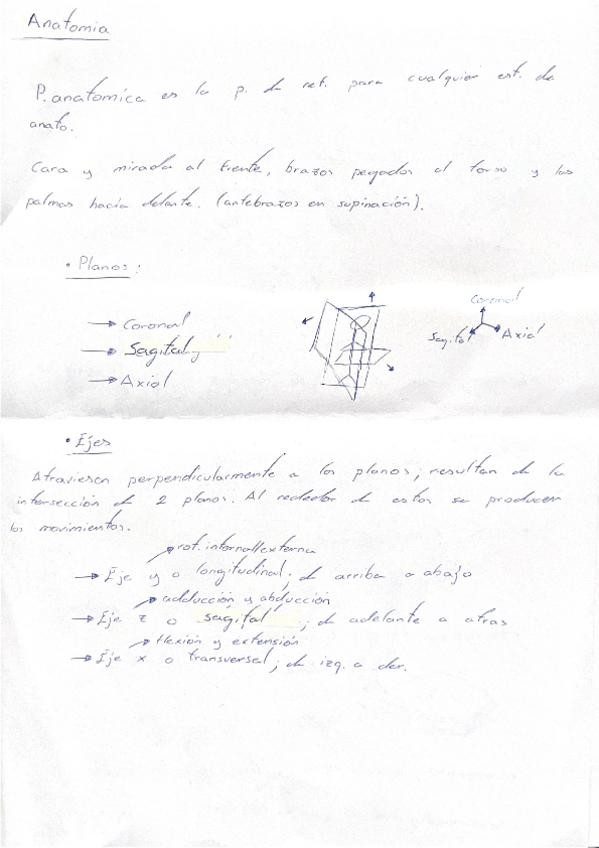 Anatomia
P. anatomica es la p. de ref. para cualquier est. de
anato.
Cara y mirada al frente, brazos pegados al torso y las
palmas hacia delante. (antebrazos en supinación).
• Planos:
→ Coronal
→ Sagital y
→ Axial
Coronal
Sagital
Axial
• Ejes
Atraviesan perpendicularmente a los planos; resultan de la
intersección de 2 planos. Al rededor de estos se producen
los movimientos.
→ rot. interna//externa
→ Eje y o longitudinal; de arriba a abajo
→ adducción y abducción
→ Eje z o sagital ; de adelante a atras
→ flexión y extensión
→ Eje x o transversal; de izq. a der.